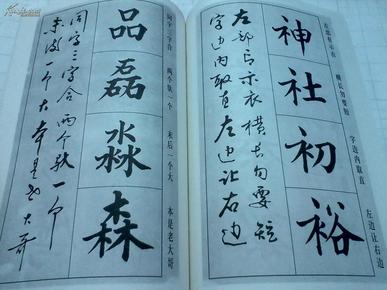 左部有示衣 横长勾要短 字边内取直 左边让右边
神社初裕
左部有示衣横长勾要短
字边内取直左边让右边
同字三字合 两个缺一个 末后一个大 本是老大哥
品磊淼森
同字三字合两个缺一个
末后一个大本是老大哥